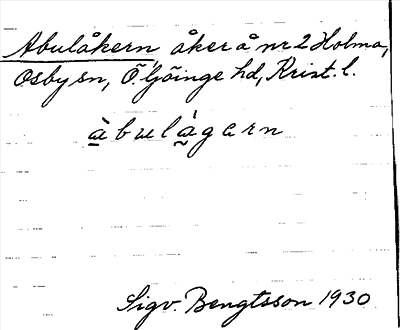 Abulåkern åker å nr 2 Holma,
Osby sn, Ö. Göinge hd, Krist. l.
à̱bulà̰gern
Sigv. Bengtsson 1930